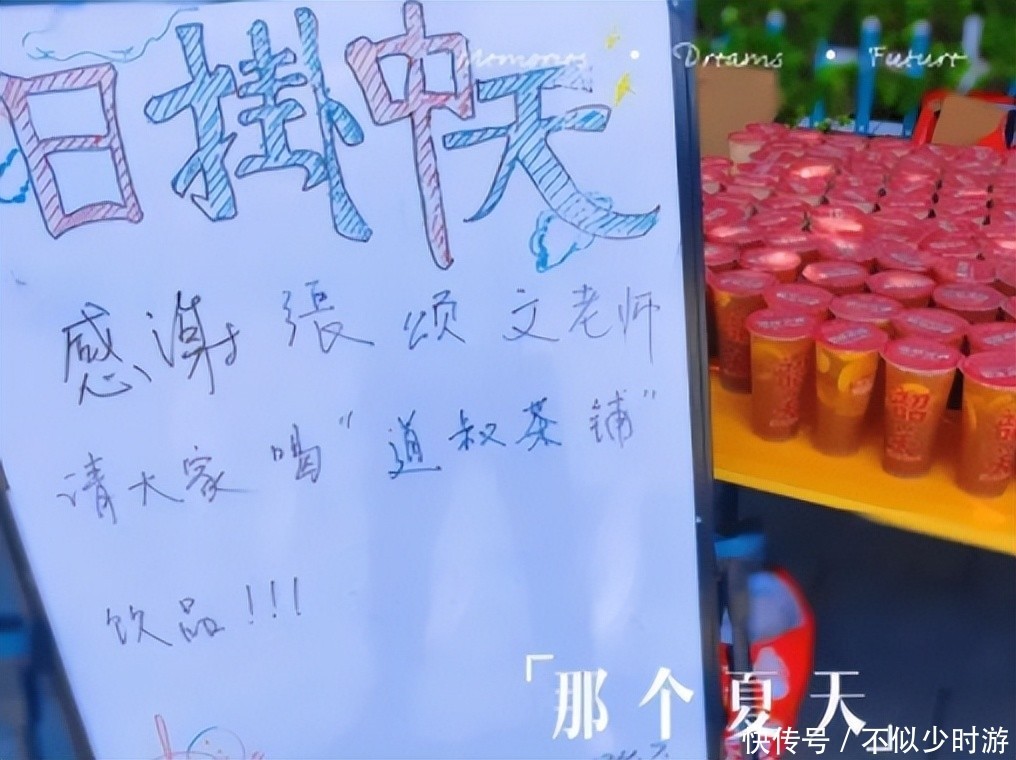 Dreams • Future
日掛中天
感谢張颂文老师
请大家喝“道叔茶铺”
饮品!!!
「那个夏天」
快传号 / 不似少时游